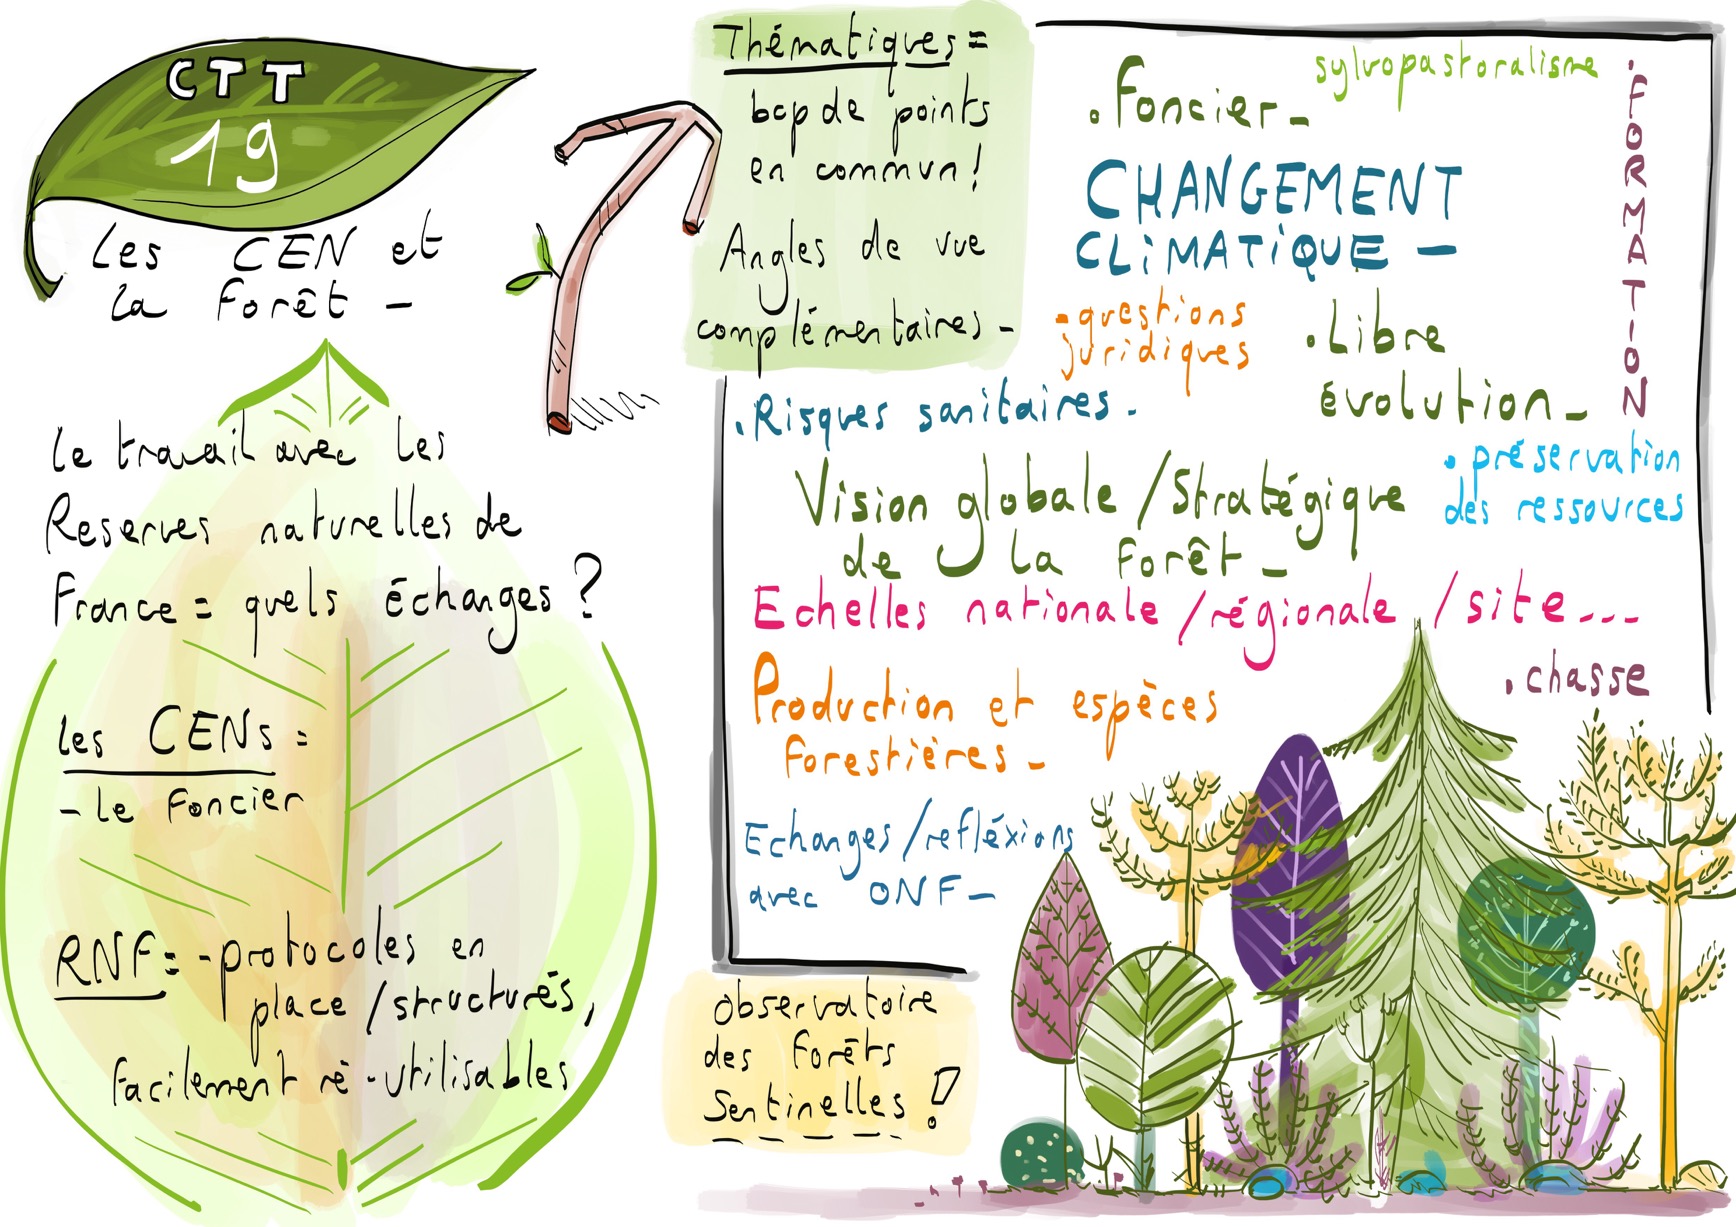 CTT
19
les CEN et
la Forêt -
le travail avec les
Reserves naturelles de
France = quels échanges ?
les CENs =
- le Foncier
RNF = - protocoles en
place / structurés,
facilement ré-utilisables
Thématiques =
bcp de points
en commun !
Angles de vue
complémentaires -
sylvopastoralisme
. Foncier -
. FORMATION
CHANGEMENT
CLIMATIQUE -
- questions
juridiques
. Libre
évolution -
. Risques sanitaires -
. préservation
des ressources
Vision globale / Stratégique
de la Forêt -
Echelles nationale / régionale / site ...
. chasse
Production et espèces
Forestières -
Echanges / refléxions
avec ONF -
Observatoire
des Forêts
Sentinelles !